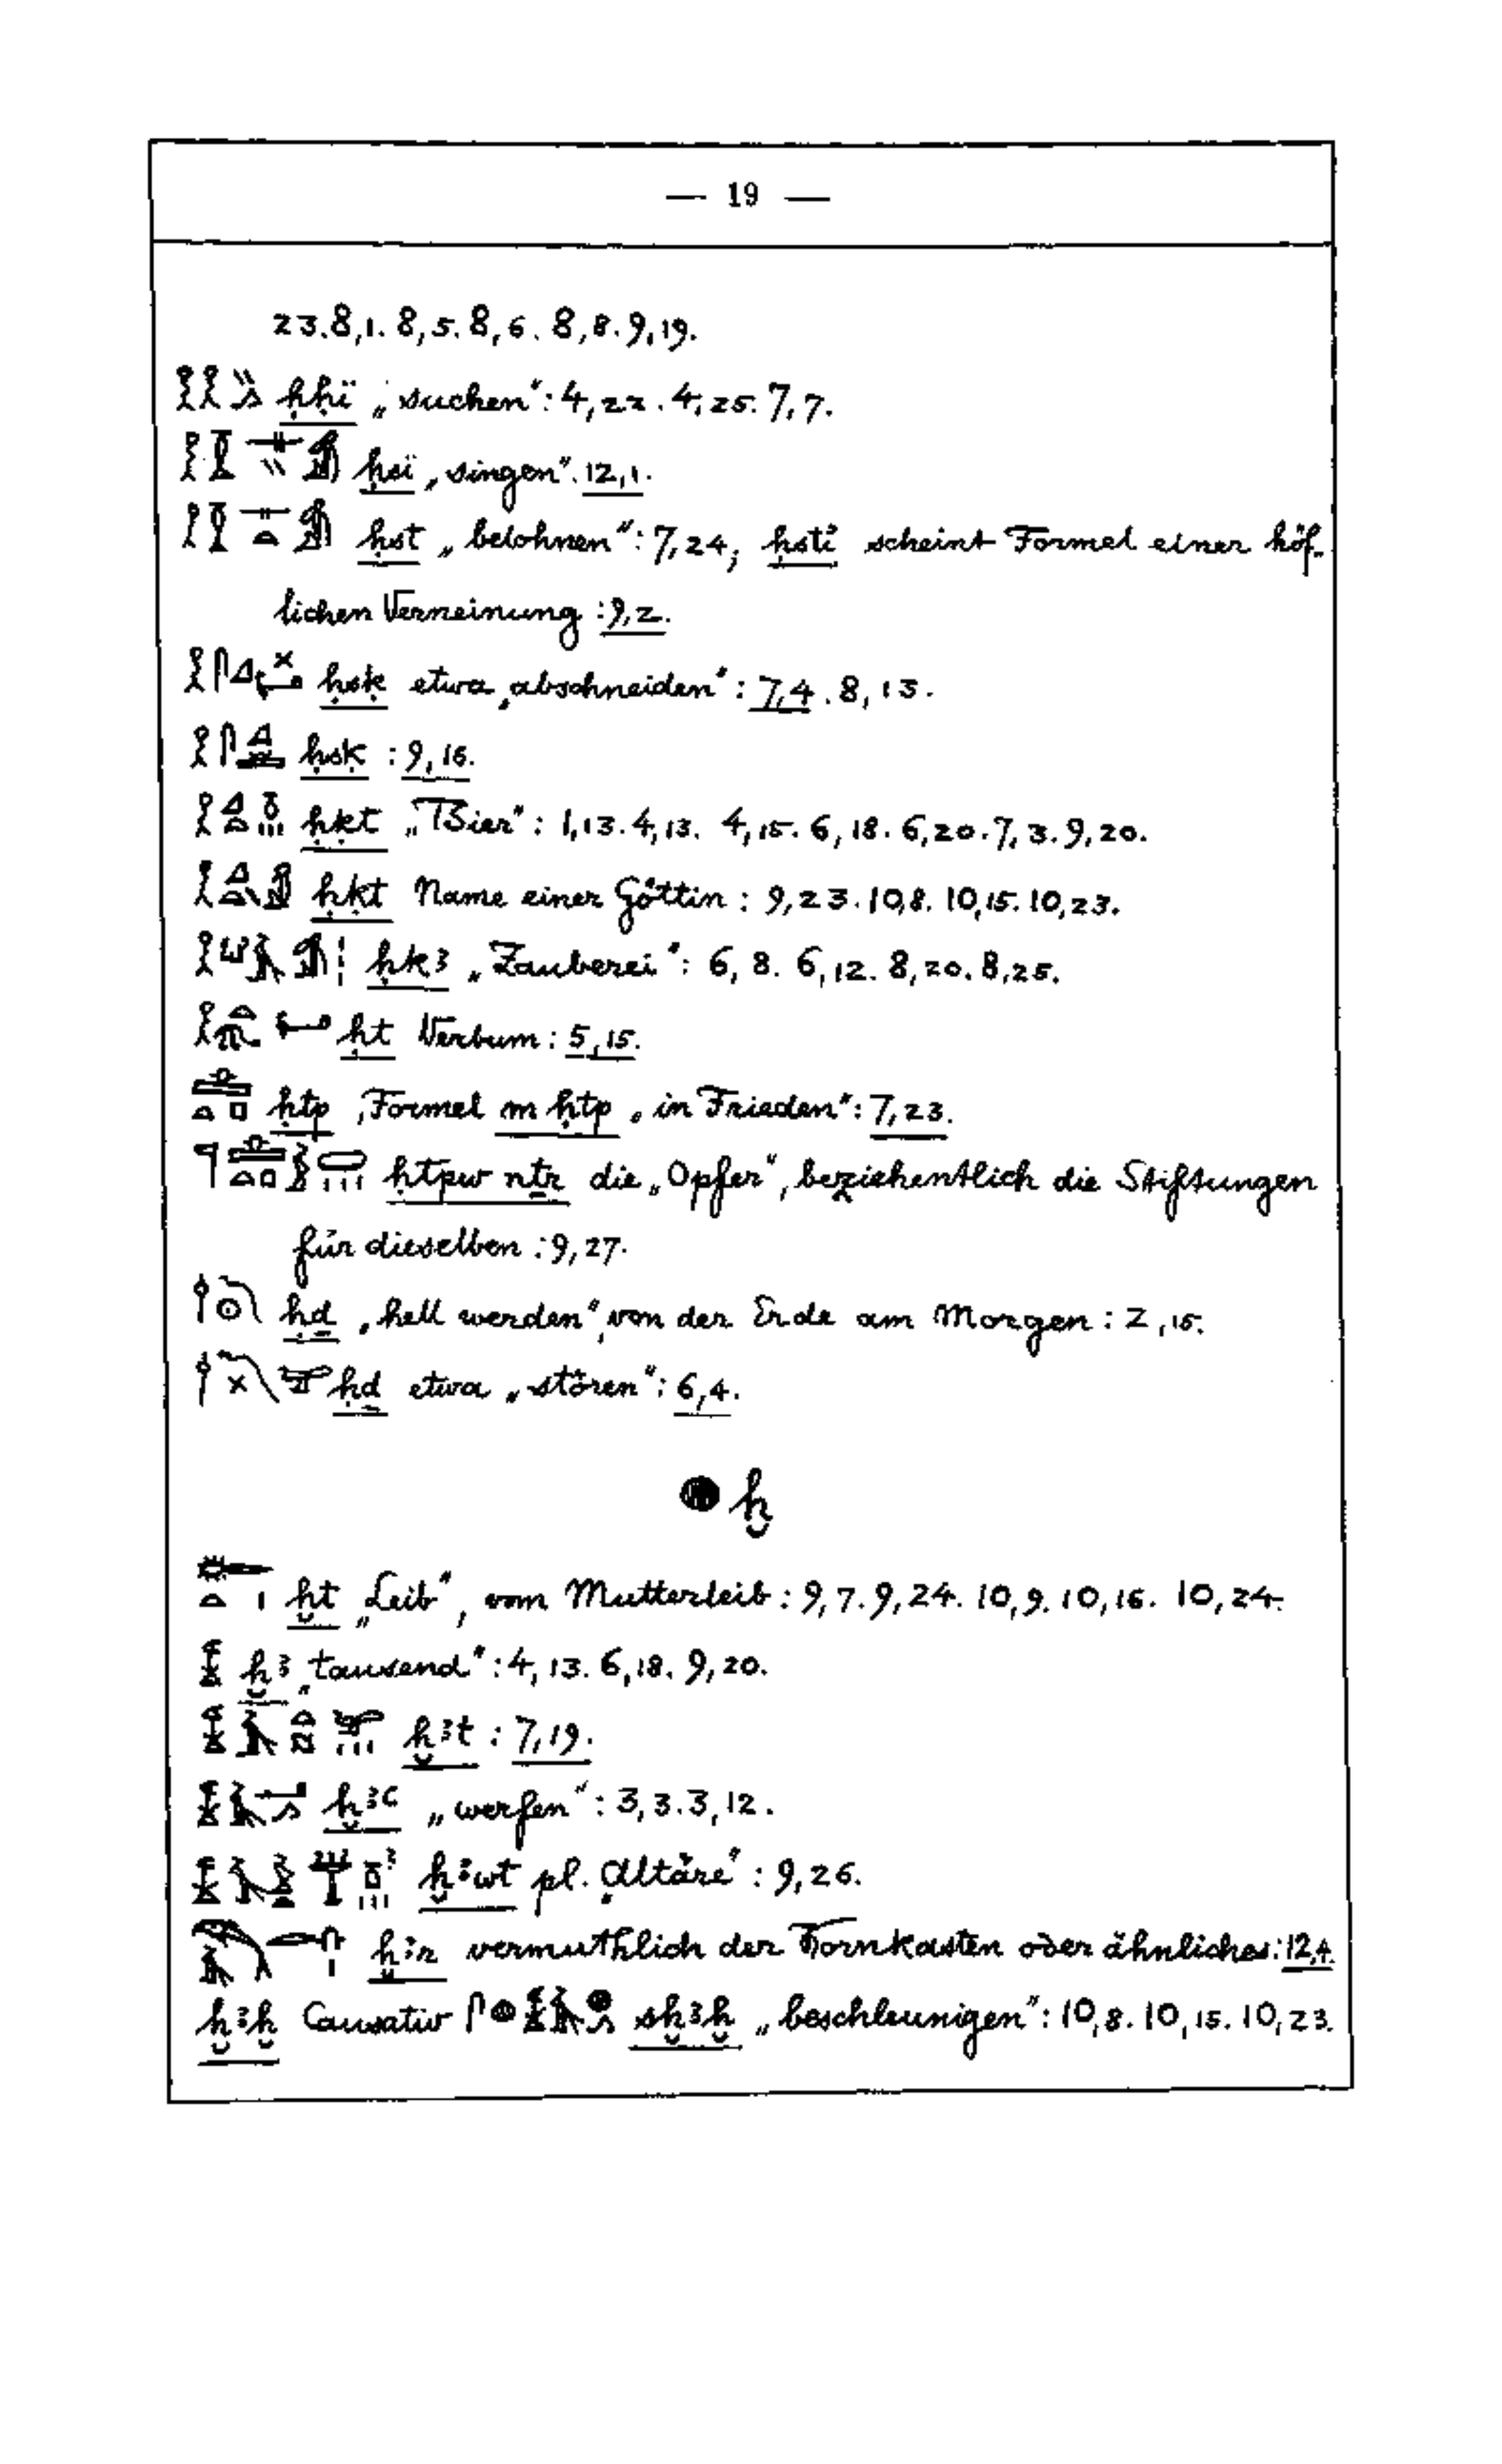 — 19 —
23. 8,1. 8,5. 8,6. 8,8. 9,19.
ḥḥï „suchen“: 4,22. 4,25. 7,7.
ḥsï „singen“. 12,1.
ḥst „belohnen“: 7,24; ḥstï scheint Formel einer höf-
lichen Verneinung: 9,2.
ḥsḳ etwa „abschneiden“: 7,4. 8,13.
ḥsḳ: 9,16.
ḥḳt „Bier“: 1,13. 4,13. 4,15. 6,18. 6,20. 7,3. 9,20.
ḥḳt Name einer Göttin: 9,23. 10,8. 10,15. 10,23.
ḥkꜣ „Zauberei“: 6,8. 6,12. 8,20. 8,25.
ḥt Verbum: 5,15.
ḥtp, Formel m ḥtp „in Frieden“: 7,23.
ḥtpw nṯr die „Opfer“, beziehentlich die Stiftungen
für dieselben: 9,27.
ḥḏ „hell werden“, von der Erde am Morgen: 2,15.
ḥḏ etwa „stören“: 6,4.
ḫ
ḫt „Leib“, vom Mutterleib: 9,7. 9,24. 10,9. 10,16. 10,24.
ḫꜣ „tausend“: 4,13. 6,18. 9,20.
ḫꜣt: 7,19.
ḫꜣꜥ „werfen“: 3,3. 3,12.
ḫꜣwt pl. „Altäre“: 9,26.
ḫꜣr vermuthlich der Kornkasten oder ähnliches: 12,4.
ḫꜣḫ Causativ sḫꜣḫ „beschleunigen“: 10,8. 10,15. 10,23.